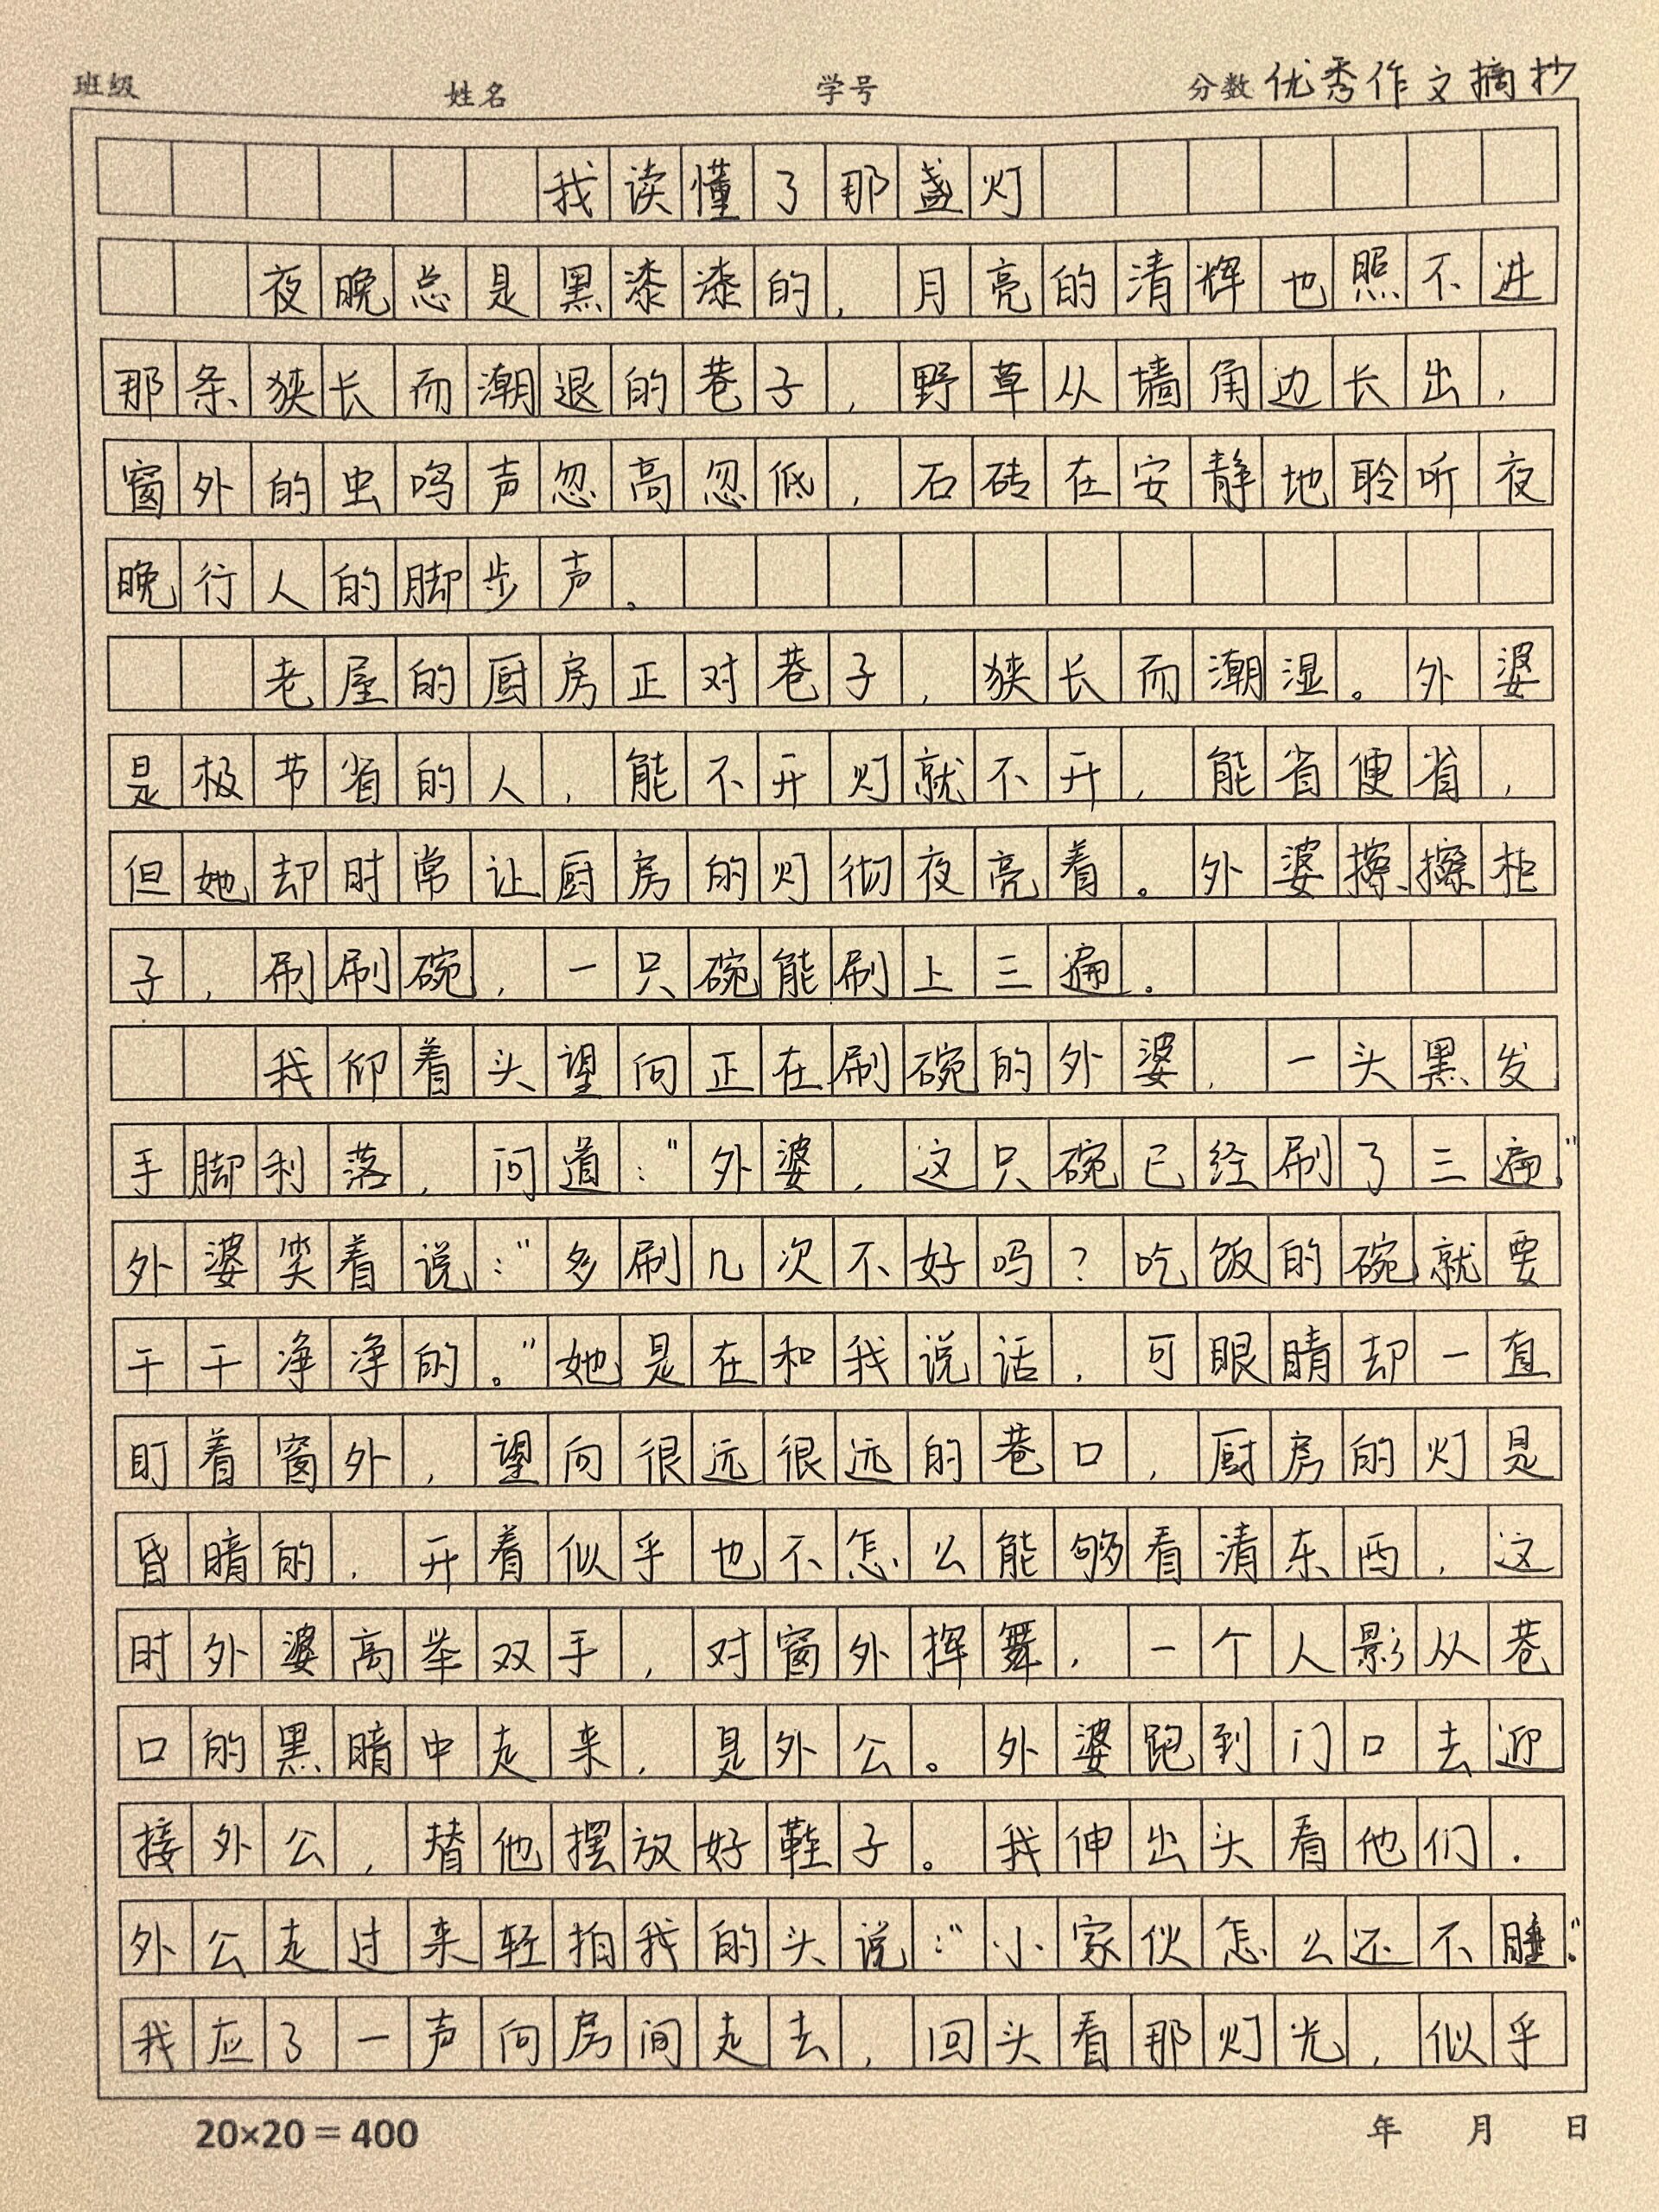 班级 姓名 学号 分数 优秀作文摘抄
我读懂了那盏灯
夜晚总是黑漆漆的，月亮的清辉也照不进
那条狭长而潮退的巷子，野草从墙角边长出，
窗外的虫鸣声忽高忽低，石砖在安静地聆听夜
晚行人的脚步声。
老屋的厨房正对巷子，狭长而潮湿。外婆
是极节省的人，能不开灯就不开，能省便省，
但她却时常让厨房的灯彻夜亮着。外婆擦擦柜
子，刷刷碗，一只碗能刷上三遍。
我仰着头望向正在刷碗的外婆，一头黑发
手脚利落，问道："外婆，这只碗已经刷了三遍。"
外婆笑着说："多刷几次不好吗？吃饭的碗就要
干干净净的。"她是在和我说话，可眼睛却一直
盯着窗外，望向很远很远的巷口，厨房的灯是
昏暗的，开着似乎也不怎么能够看清东西，这
时外婆高举双手，对窗外挥舞，一个人影从巷
口的黑暗中走来，是外公。外婆跑到门口去迎
接外公，替他摆放好鞋子。我伸出头看他们．
外公走过来轻拍我的头说："小家伙怎么还不睡。"
我应了一声向房间走去，回头看那灯光，似乎
20×20＝400 年 月 日